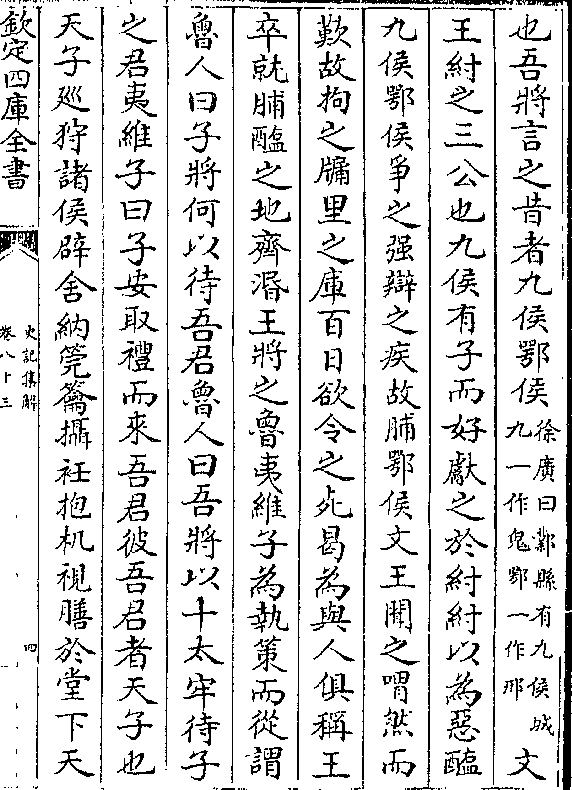 也吾將言之昔者九侯鄂侯徐廣曰鄴縣有九侯城九一作鬼鄂一作邢文
王紂之三公也九侯有子而好獻之於紂紂以為惡醢
九侯鄂侯爭之强辯之疾故脯鄂侯文王聞之喟然而
歎故拘之牖里之庫百日欲令之死曷為與人俱稱王
卒就脯醢之地齊湣王將之魯夷維子為執策而從謂
魯人曰子將何以待吾君魯人曰吾將以十太牢待子
之君夷維子曰子安取禮而來吾君彼吾君者天子也
天子廵狩諸侯辟舍納筦籥攝衽抱机視膳於堂下天
欽定四庫全書
史記集解
卷八十三
四